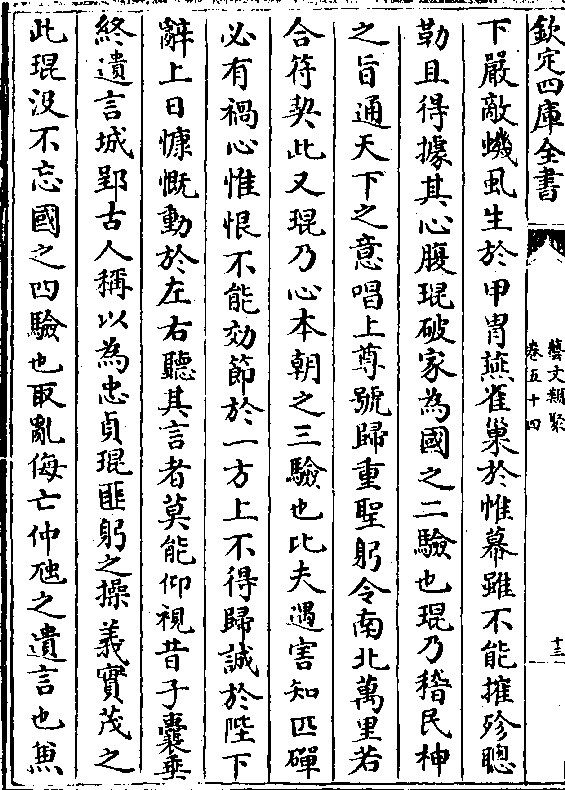 欽定四庫全書
藝文類聚
卷五十四
十三
下嚴敵蟣虱生於甲冑燕雀巢於帷幕雖不能摧殄聰
勒且得據其心腹琨破家為國之二驗也琨乃稽民神
之旨通天下之意唱上尊號歸重聖躬令南北萬里若
合符契此又琨乃心本朝之三驗也比夫遇害知匹磾
必有禍心惟恨不能効節於一方上不得歸誠於陛下
辭上日慷慨動於左右聽其言者莫能仰視昔子囊垂
終遺言城郢古人稱以為忠貞琨匪躬之操義實茂之
此琨没不忘國之四驗也取亂侮亡仲虺之遺言也兼